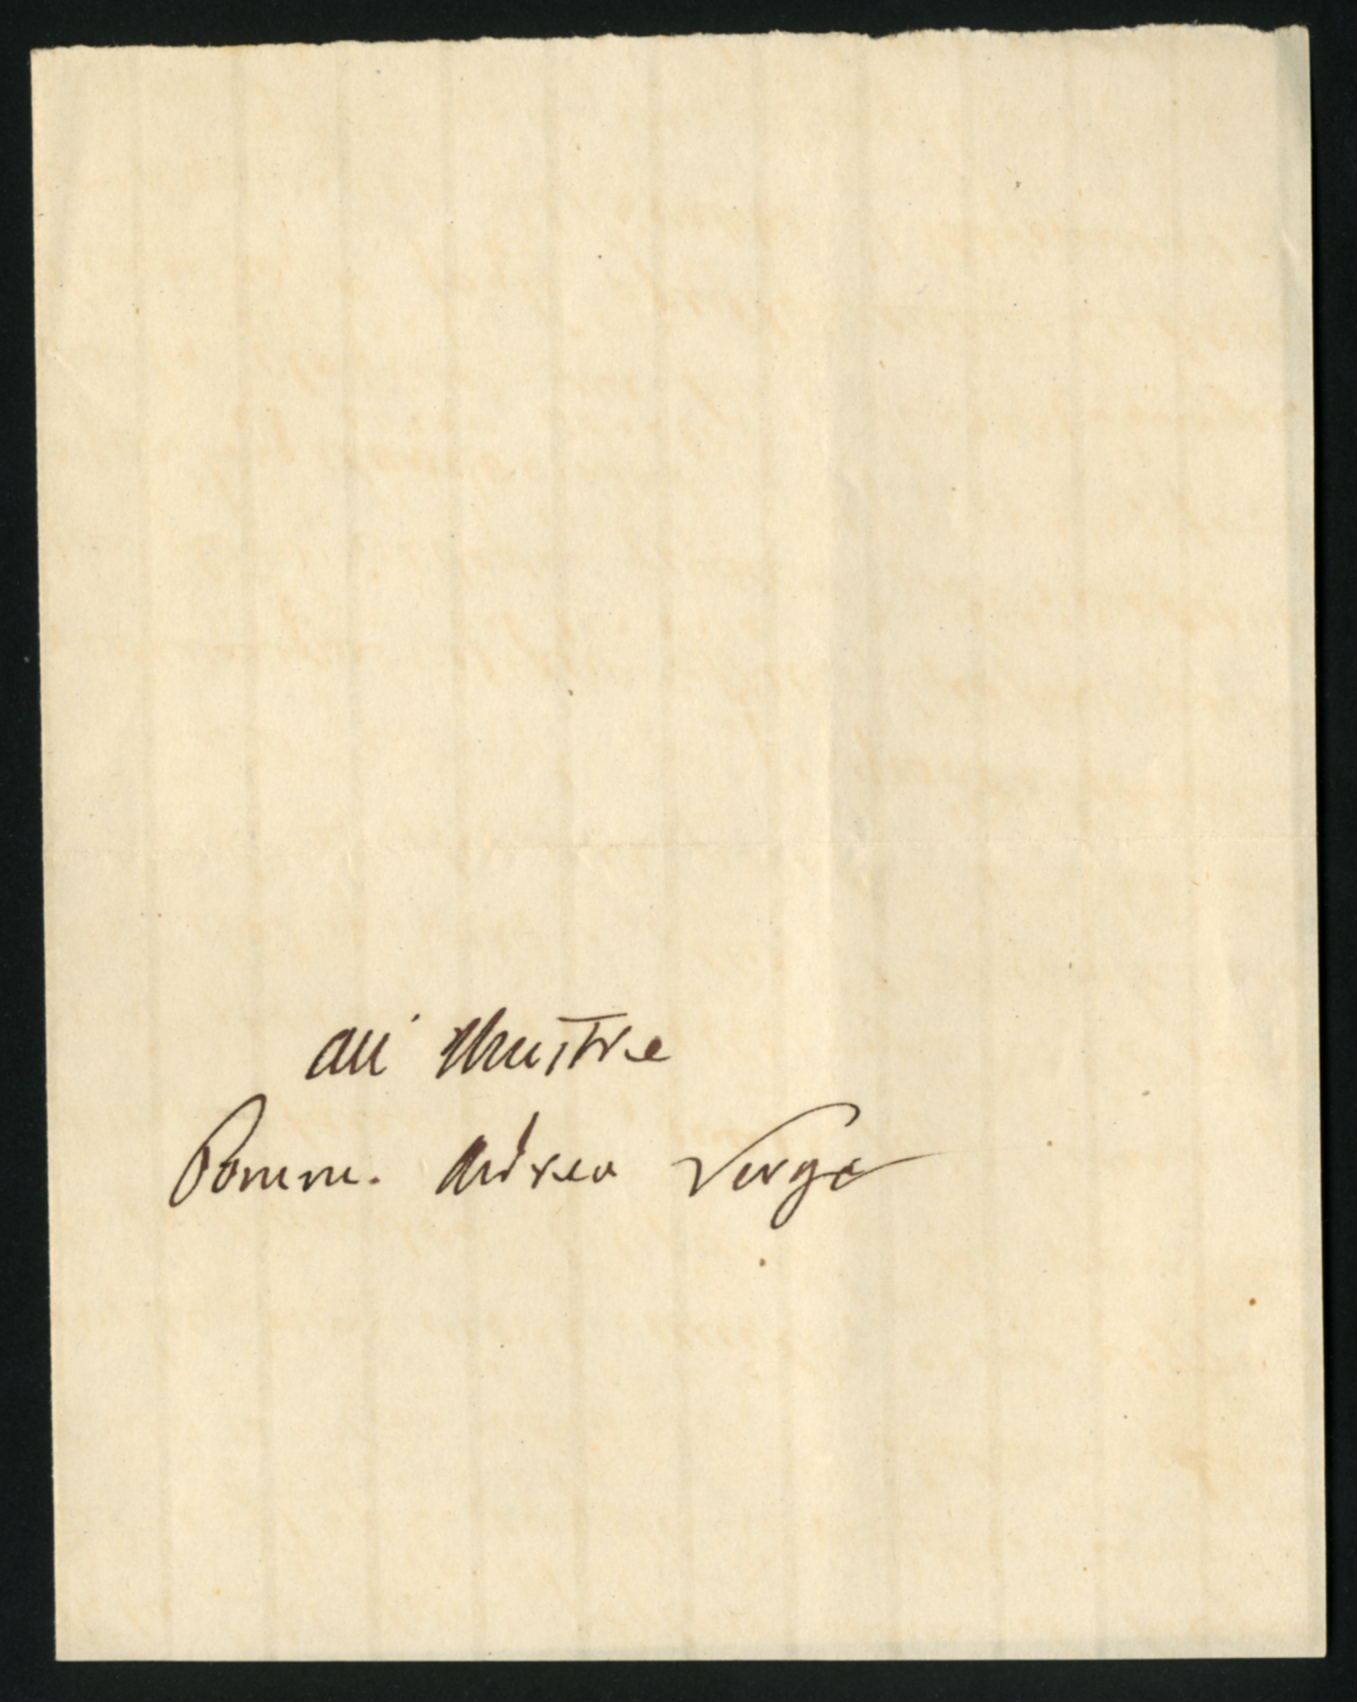 All' Illustre
Comm. Andrea Verga